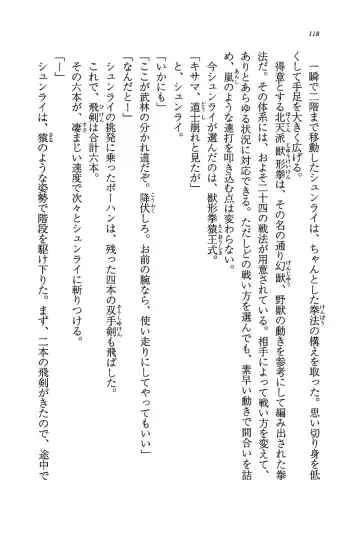 118
一瞬で二階まで移動したシュンライは、ちゃんとした拳法の構えを取った。思い切り身を低
くして手足を大きく広げる。
得意とする北天派獣形拳は、その名の通り幻獣、野獣の動きを参考にして編み出された拳
法だ。その体系には、およそ二十四の戦法が用意されている。相手によって戦い方を変えて、
ありとあらゆる状況に対応できる。ただしどの戦い方を選んでも、素早い動きで間合いを詰
め、嵐のような連打を叩き込む点は変わらない。
今シュンライが選んだのは、獣形拳猿王式。
「キサマ、道士崩れと見たが」
と、シュンライ。
「いかにも」
「ここが武林の分かれ道だぞ。降伏しろ。お前の腕なら、使い走りにしてやってもいい」
「なんだと！」
シュンライの挑発に乗ったボーハンは、残った四本の双手剣も飛ばした。
これで、飛剣は合計六本。
その六本が、凄まじい速度で次々とシュンライに斬りつける。
「！」
シュンライは、猿のような姿勢で階段を駆け下りた。まず、二本の飛剣がきたので、途中で